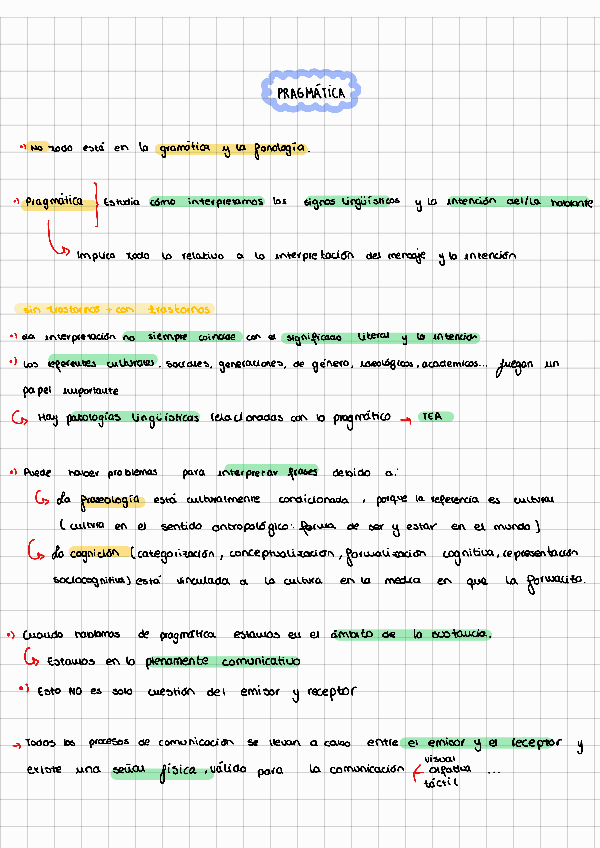 PRAGMÁTICA
•) No todo está en la gramática y la fonología.
•) Pragmática Estudia cómo interpretamos los signos lingüísticos y la intención del/la hablante
Implica todo lo relativo a la interpretación del mensaje y la intención
sin trastornos + con trastornos
•) La interpretación no siempre coincide con el significado literal y la intención
•) Los referentes culturales, sociales, generaciones, de género, ideológicos, académicos... juegan un
papel importante
Hay patologías lingüísticas relacionadas con la pragmática → TEA
•) Puede haber problemas para interpretar frases debido a:
La fraseología está culturalmente condicionada, porque la referencia es cultural
(cultura en el sentido antropológico: forma de ser y estar en el mundo)
La cognición (categorización, conceptualización, formalización cognitiva, representación
sociocognitiva) está vinculada a la cultura en la medida en que la formaliza.
•) Cuando hablamos de pragmática estamos en el ámbito de la sustancia.
Estamos en lo plenamente comunicativo
•) Esto NO es solo cuestión del emisor y receptor
→ Todos los procesos de comunicación se llevan a cabo entre el emisor y el receptor y
existe una señal física, válido para la comunicación
visual
olfativa ...
táctil